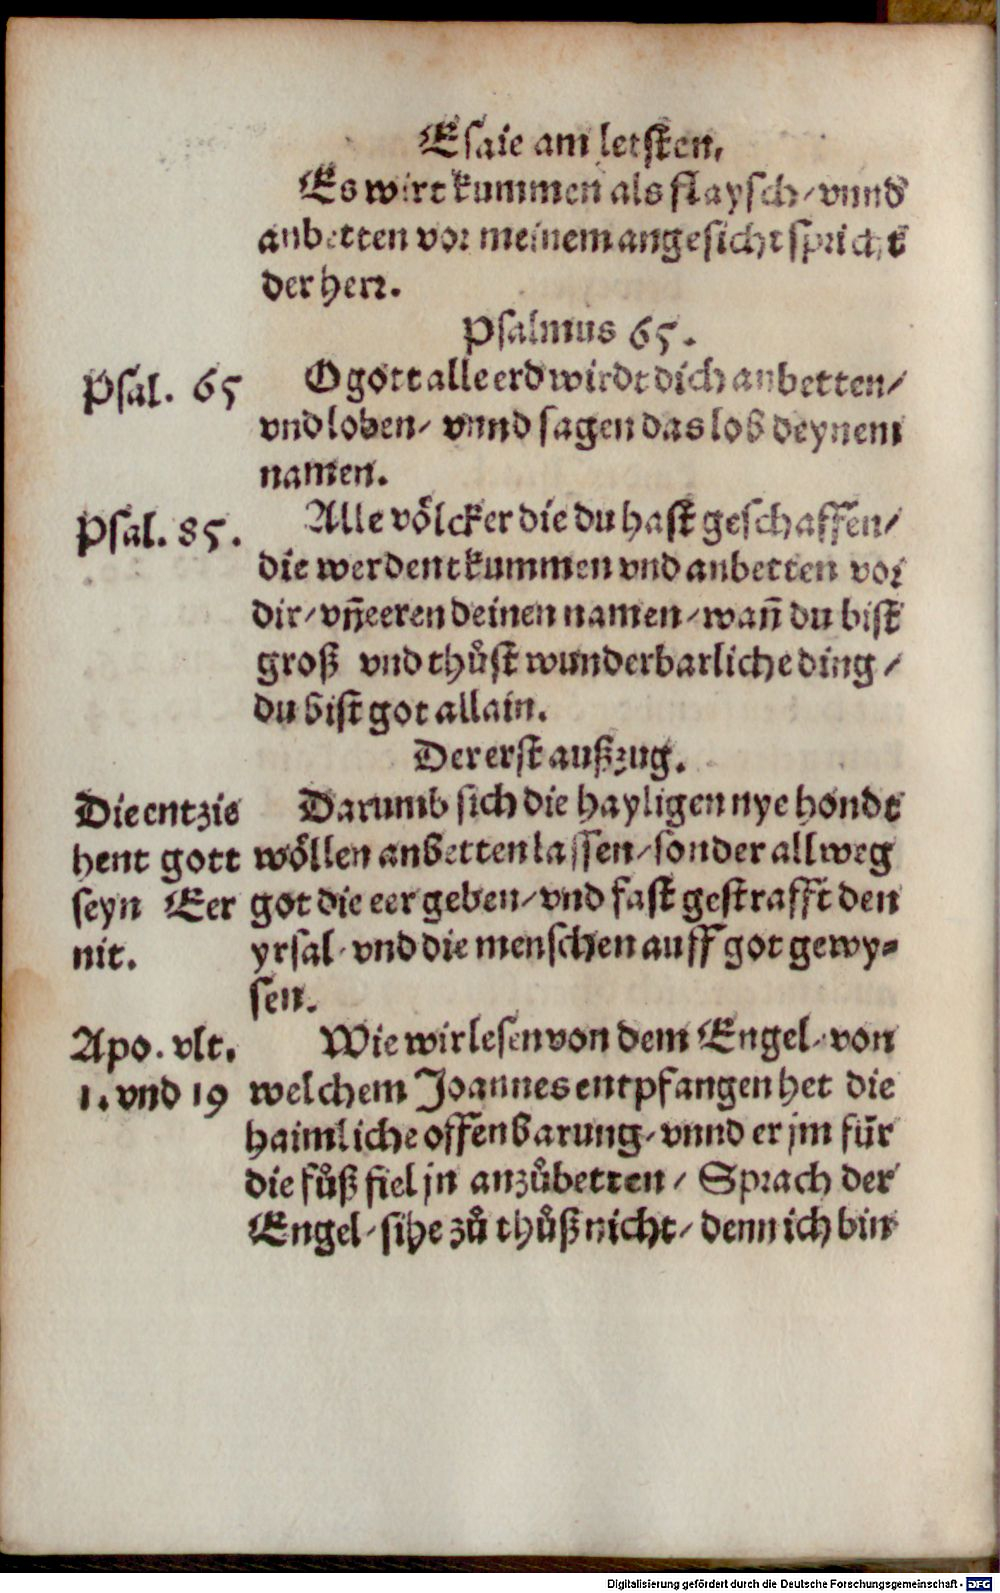 Esaie am letsten.
Es wirt kummen als flaysch / vnnd
anbetten vor meinem angesicht spricht
der herr.
Psalmus 65.
Psal. 65
O gott alle erd wirdt dich anbetten /
vnd loben / vnnd sagen das lob deynem
namen.
Psal. 85.
Alle völcker die du hast geschaffen /
die werdent kummen vnd anbetten vor
dir / vñ eeren deinen namen / wañ du bist
groß vnd thůst wunderbarliche ding /
du bist got allain.
Der erst außzug.
Die entzie
hent gott
seyn Eer
nit.
Darumb sich die hayligen nye hondt
wöllen anbetten lassen / sonder allweg
got die eer geben / vnd fast gestrafft den
yrsal / vnd die menschen auff got gewy-
sen.
Apo. vlt.
1. vnd 19
Wie wir lesen von dem Engel / von
welchem Joannes entpfangen het die
haimliche offenbarung / vnnd er jm für
die fůß fiel jn anzůbetten / Sprach der
Engel / sihe zů thůß nicht / denn ich bin
Digitalisierung gefördert durch die Deutsche Forschungsgemeinschaft - DFG